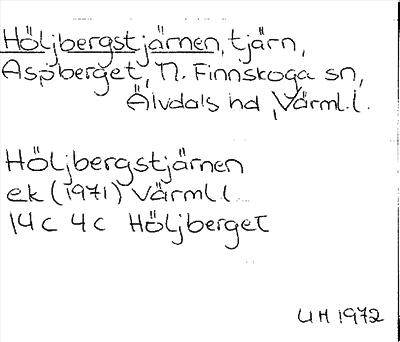 Höljbergstjärnen, tjärn,
Aspberget, N. Finnskoga sn,
Älvdals hd, Värml. l.
Höljbergstjärnen
ek (1971) Värml. l
14 c 4 c Höljberget
UH 1972